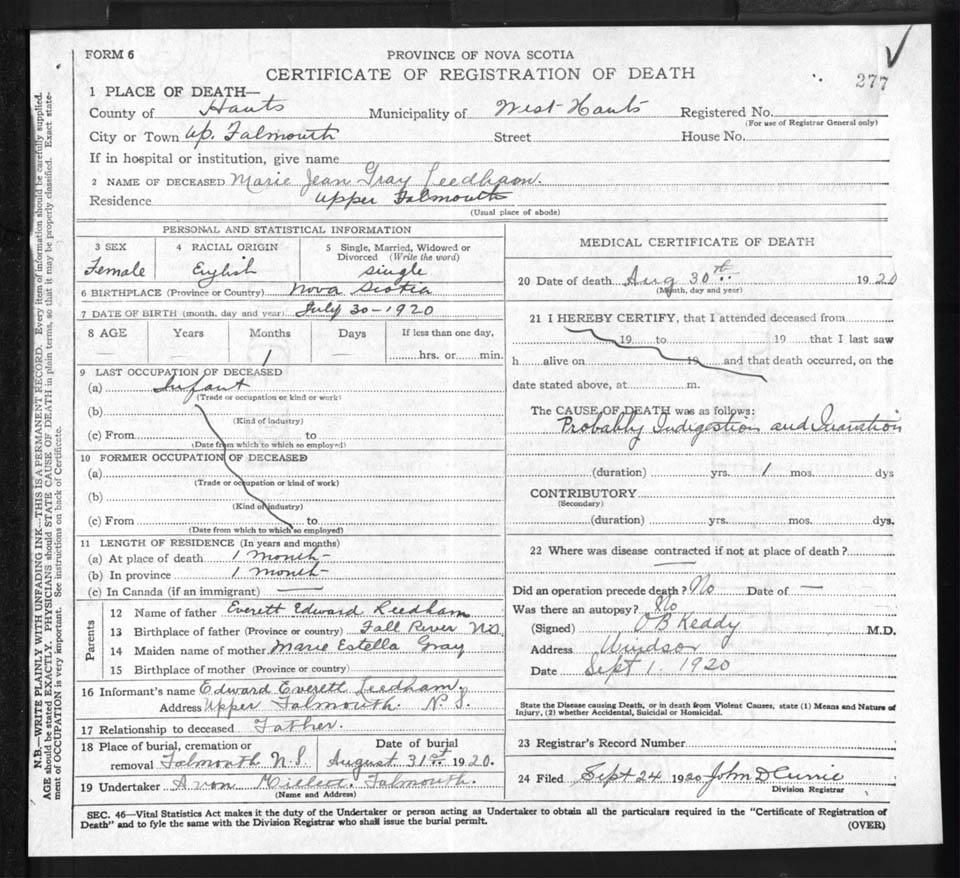 FORM 6
PROVINCE OF NOVA SCOTIA
CERTIFICATE OF REGISTRATION OF DEATH
277
1 PLACE OF DEATH—
County of Hants Municipality of West Hants Registered No.
(For use of Registrar General only)
City or Town Up. Falmouth Street House No.
If in hospital or institution, give name
2 NAME OF DECEASED Marie Jean Gray Leedham.
Residence Upper Falmouth
(Usual place of abode)
PERSONAL AND STATISTICAL INFORMATION
3 SEX 4 RACIAL ORIGIN 5 Single, Married, Widowed or
Divorced (Write the word)
Female English single
6 BIRTHPLACE (Province or Country) Nova Scotia
7 DATE OF BIRTH (month, day and year) July 30-1920
8 AGE Years Months Days If less than one day,
— 1 — hrs. or min.
9 LAST OCCUPATION OF DECEASED
(a) Infant
(Trade or occupation or kind or work)
(b)
(Kind of industry)
(c) From to
(Date from which to which so employed)
10 FORMER OCCUPATION OF DECEASED
(a)
(Trade or occupation or kind of work)
(b)
(Kind of industry)
(c) From to
(Date from which to which so employed)
11 LENGTH OF RESIDENCE (In years and months)
(a) At place of death 1 month-
(b) In province 1 month-
(c) In Canada (if an immigrant) —
Parents
12 Name of father Everett Edward Leedham
13 Birthplace of father (Province or country) Fall River N.S.
14 Maiden name of mother Marie Estella Gray
15 Birthplace of mother (Province or country)
16 Informant's name Edward Everett Leedham.
Address Upper Falmouth. N.S.
17 Relationship to deceased Father.
18 Place of burial, cremation or Date of burial
removal Falmouth N.S. August 31st 1920.
19 Undertaker Avon Falmouth.
(Name and Address)
MEDICAL CERTIFICATE OF DEATH
20 Date of death Aug 30th 1920
(Month, day and year)
21 I HEREBY CERTIFY, that I attended deceased from
19 to 19 that I last saw
h alive on 19 and that death occurred, on the
date stated above, at m.
The CAUSE OF DEATH was as follows:
Probably Indigestion and Inanition
(duration) yrs. 1 mos. dys
CONTRIBUTORY
(Secondary)
(duration) yrs. mos. dys.
22 Where was disease contracted if not at place of death?
—
Did an operation precede death? No Date of —
Was there an autopsy? No
(Signed) O B Keddy M.D.
Address Windsor
Date Sept 1. 1920
State the Disease causing Death, or in death from Violent Causes, state (1) Means and Nature of
Injury, (2) whether Accidental, Suicidal or Homicidal.
23 Registrar's Record Number
24 Filed Sept 24 1920 John D Currie
Division Registrar
SEC. 46—Vital Statistics Act makes it the duty of the Undertaker or person acting as Undertaker to obtain all the particulars required in the "Certificate of Registration of
Death" and to fyle the same with the Division Registrar who shall issue the burial permit. (OVER)
N.B.—WRITE PLAINLY WITH UNFADING INK—THIS IS A PERMANENT RECORD. Every item of information should be carefully supplied.
AGE should be stated EXACTLY. PHYSICIANS should STATE CAUSE OF DEATH in plain terms, so that it may be properly classified. Exact state-
ment of OCCUPATION is very important. See instructions on back of Certificate.